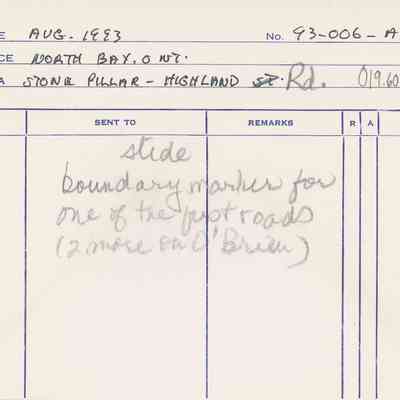 E AUG. 1993 No. 93-006-A
CE NORTH BAY, ONT.
A STONE PILLAR - HIGHLAND ST. Rd. 019.60
SENT TO REMARKS R A
slide
boundary marker for
one of the first roads
(2 more on O'Brien)